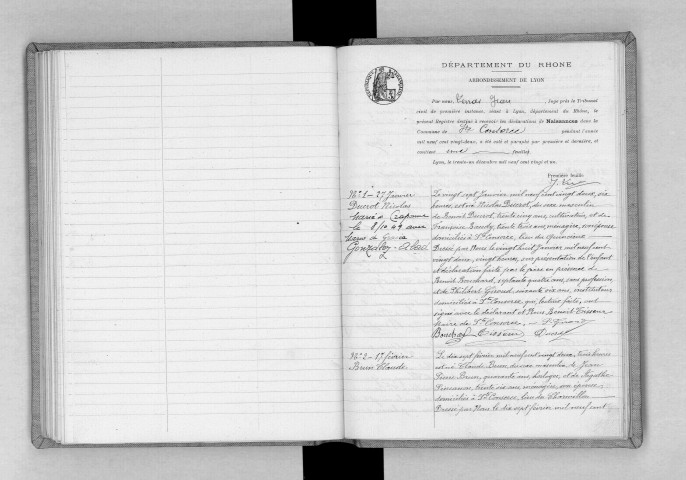 DÉPARTEMENT DU RHONE
ARRONDISSEMENT DE LYON
Par nous, Juge près le Tribunal
civil de première instance, séant à Lyon, département du Rhône, le
présent Registre destiné à recevoir les déclarations de Naissances dans la
Commune de Ste Consorce pendant l'année
mil neuf cent vingt-deux, a été coté et paraphé par première et dernière, et
contient onze feuillets.
Lyon, le trente-un décembre mil neuf cent vingt et un.
Première feuille
No 1 - 27 Janvier
Ducrot Nicolas
Marié à Craponne
le 8/10 49 avec
Maria de Gracia
Gonzalez - Abad
Le vingt sept Janvier mil neuf cent vingt deux, six
heures, est né Nicolas Ducrot, du sexe masculin
de Benoît Ducrot, trente cinq ans, cultivateur, et de
Françoise trente trois ans, ménagère, son épouse
domiciliés à Ste Consorce, lieu du Quincieux
Dressé par Nous le vingt huit Janvier mil neuf cent
vingt deux, vingt heures, sur présentation de l'enfant
et déclaration faite par le père en présence de
Benoît Bouchard, septante quatre ans, sans profession
et de Philibert Giraud soixante six ans, instituteur
domiciliés à Ste Consorce qui, lecture faite, ont
signé avec le déclarant et Nous Benoît Tisseur
Maire de Ste Consorce,
Tisseur Ducrot
No 2 - 17 février
Brun Claude
Le dix sept février mil neuf cent vingt deux, trois heures
est né Claude Brun, du sexe masculin, de Jean
Pierre Brun, quarante ans, horloger, et de
trente six ans ménagère, son épouse
domiciliés à Ste Consorce, lieu de
Dressé par Nous le dix sept février mil neuf cent